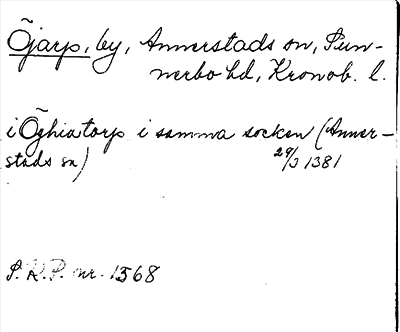 Öjarp, by, Annerstads sn, Sun-
nerbo hd, Kronob. l.
i Öghiatorp i samma socken (Anner-
stads sn) 29/3 1381
S.R.P. nr. 1568